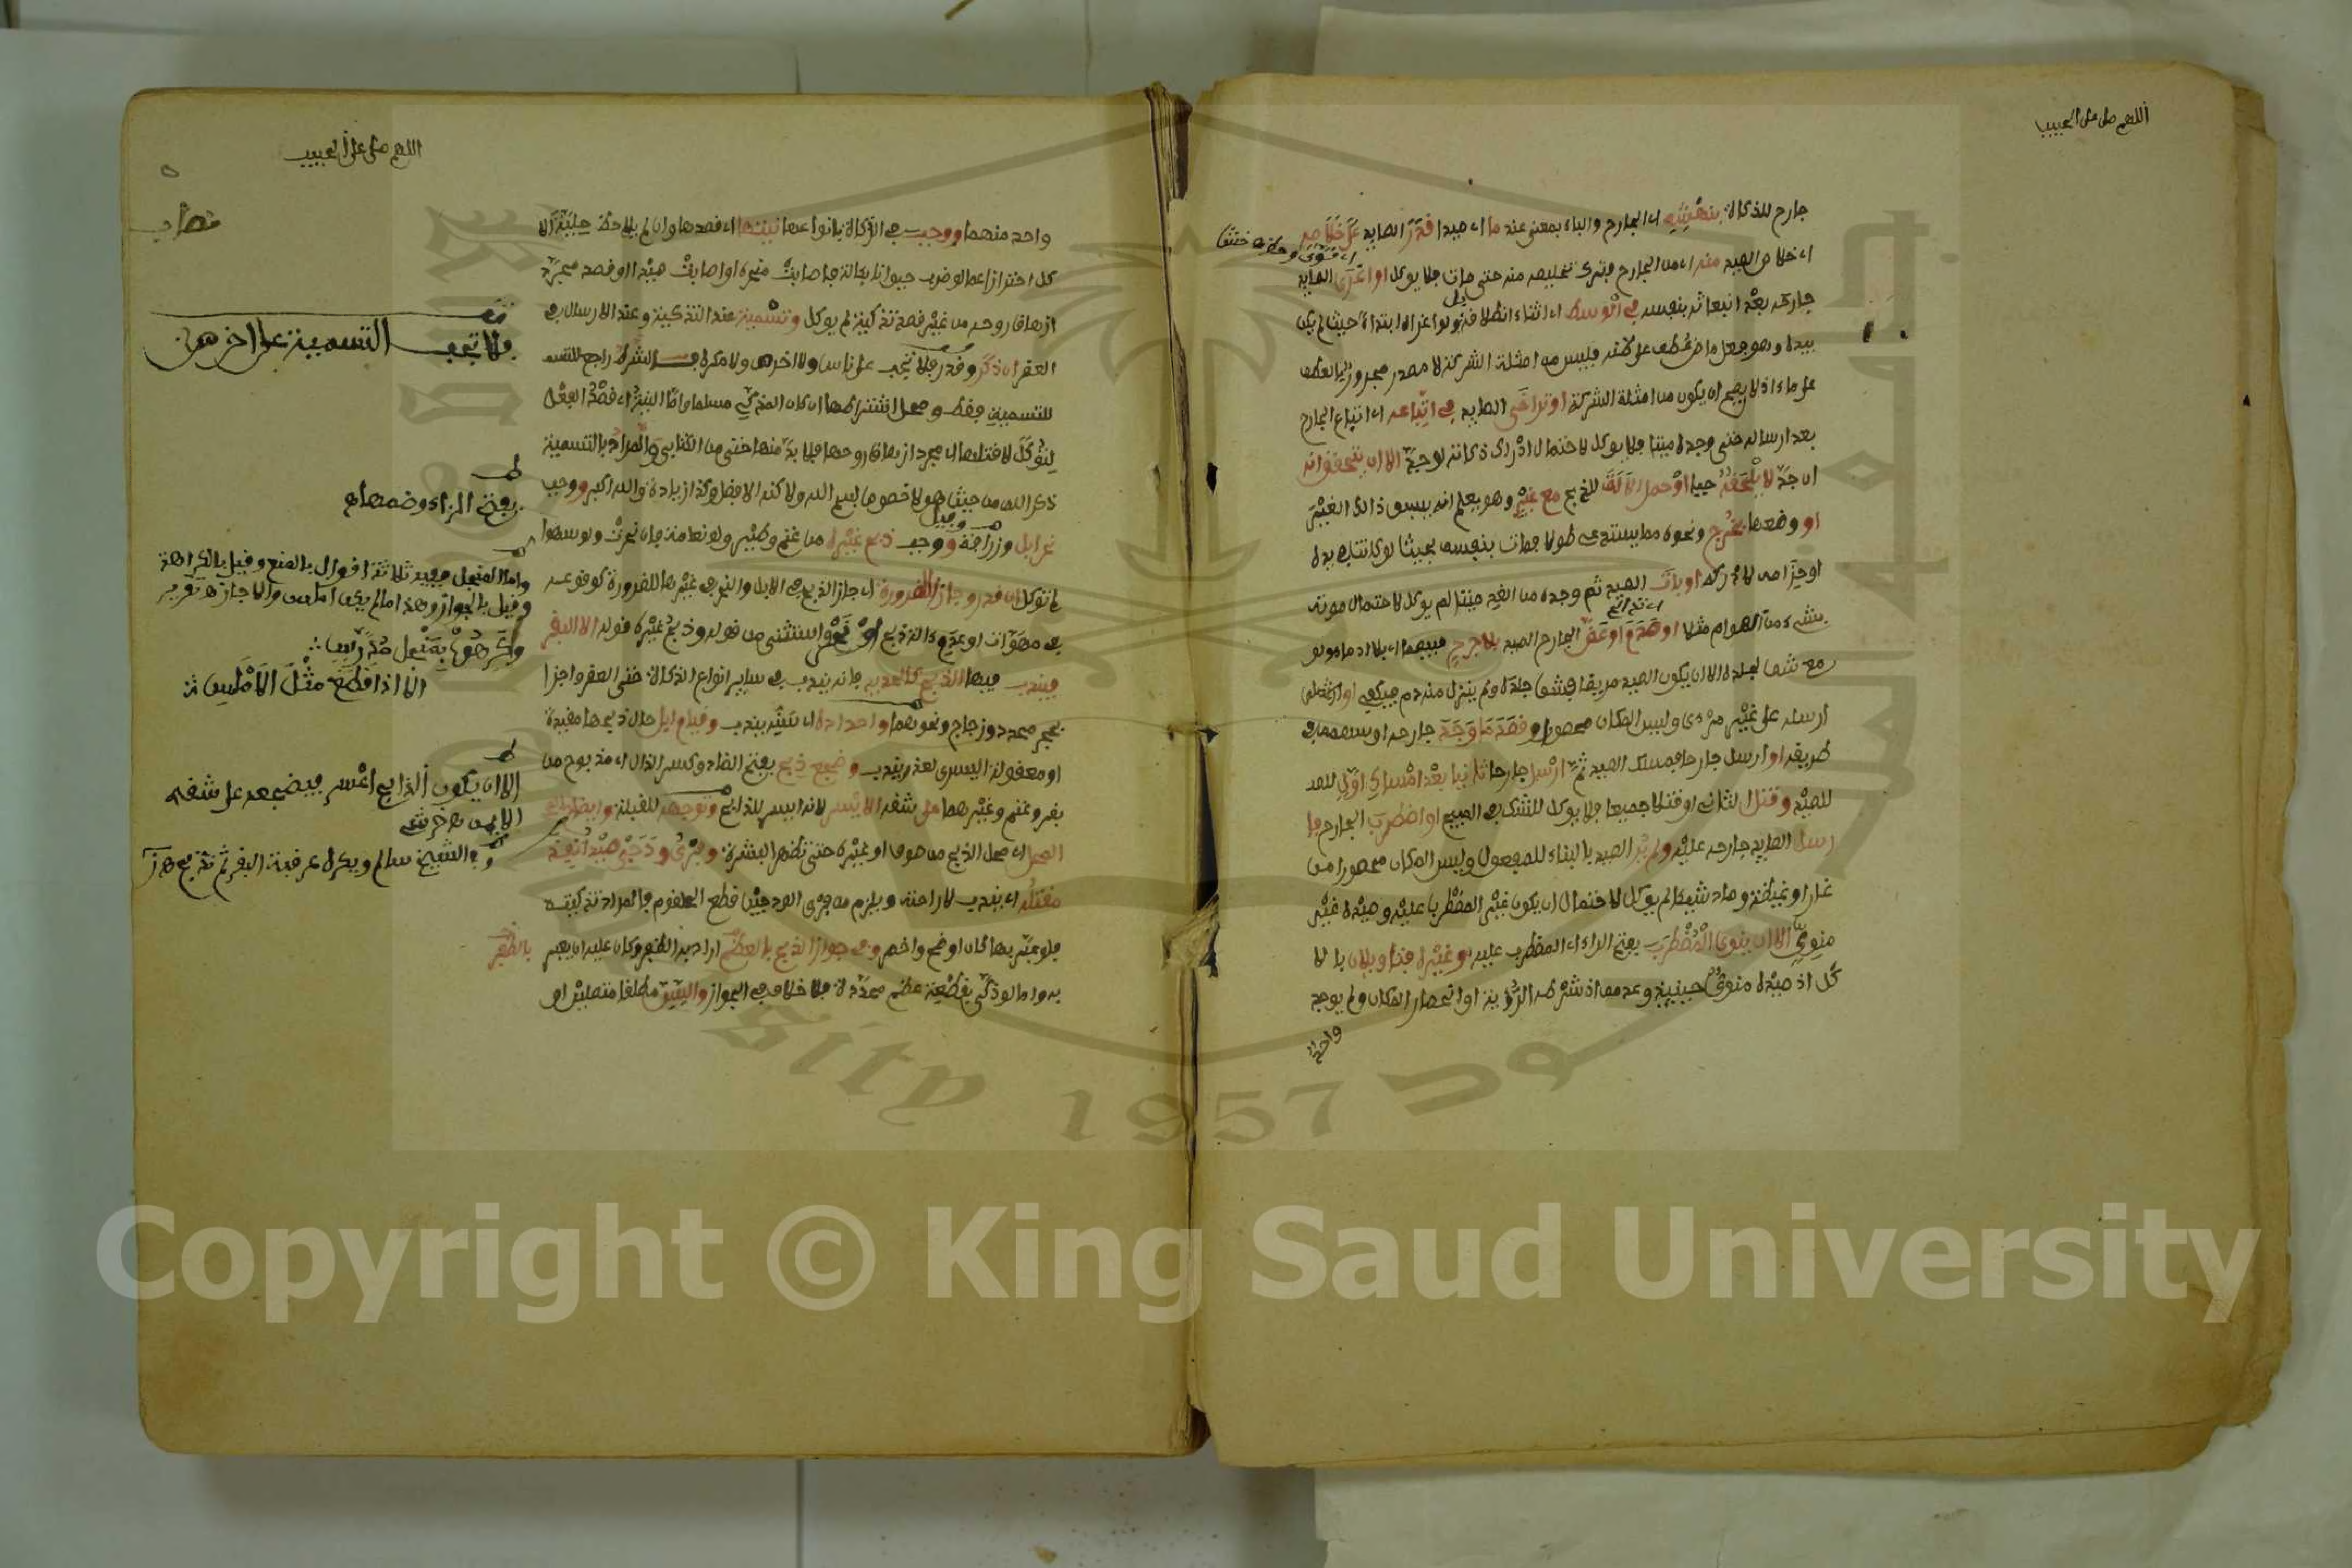 اللهم صل على الحبيب
جارح للذكاة بنهشه اي الجارح والباء بمعنى عند ما اي صيدا قدر الصايد على خلاصه
اي خلاص الصيد منه اي من الجارح فترك تخليصه منه حتى مات فلا يوكل او اغرى الصايد
جارحه بعد انبعاثه بنفسه في الوسط اي اثناء انطلاقه ولو اغراه ابتداء حيث لم يكن
بيده وهو فعل ماض عطف على ظنه فليس من امثلة الشركة لا مصدر مجرور بالعطف
على ماء اذ لا يصح ان يكون من امثلة الشركة او تراخى الصايد في اتباعه اي اتباع الجارح
بعد ارساله حتى وجده ميتا فلا يوكل لاحتمال ادراك ذكاته لو جد الا ان يتحقق انه
ان جد لا يلحقه حيا او حمل الآلة للذبح مع غير وهو يعلم انه يسبق ذالك الغير
او وضعها بخرج ونحوه مما يستدعي طولا فمات بنفسه بحيث لو كانت في يده
او حزامه لادركه او بات الصيد ثم وجده من الغد ميتا لم يوكل لاحتمال موته
بشيء من الهوام مثلا او صدم او عض الجارح الصيد بلا جرح فيهما اي بلا ادماء ولو
مع شق الجلده الا ان يكون الصيد مريضا فشق جلده ولم ينزل منه دم فيكفي او
ارسله على غير مرءى وليس المكان محصورا وقصد ما وجد جارحه او سهمه في
طريقه او ارسل جارحا فمسك الصيد ثم ارسل جارحا ثانيا بعد امساك اول للصد
للصيد وقتل الثاني او قتلاه جميعا فلا يوكل للشك في المبيح او اضطرب الجارح فا
رسل الصايد جارحه عليه ولم ير الصيد بالبناء للمفعول وليس المكان محصورا من
غار او غيضة وصاد شيئا لم يوكل لاحتمال ان يكون غير المضطرب عليه وصيده غير
منوي الا ان ينوي المضطرب بفتح الراء اي المضطرب عليه وغيره فتاويلان با لا
كل اذ صيده منوي حينيذ وعدمه اذ شرطه الرؤية او انحصار المكان ولم يوجد
واحد
اللهم صل على الحبيب
واحد منهما ووجب في الذكاة بانواعها نيتها اي قصدها وان لم يلاحظ حلية الا
كل احترازا عما لو ضرب حيوانا بءالة فاصابت منحره او اصابت صيدا او قصد مجرد
ازهاق روحه من غير قصد تذكية لم يوكل وتسمية عند التذكية وعند الارسال في
العقر ان ذكر وقدر فلا تجب على ناس ولا اخرس ولا مكره فالشرط راجع للتسمـ
للتسمية فقط ومحل اشتراطها ان كان المذكي مسلما واما النية اي قصد الفعل
لتؤكل لا قتلها اي مجرد ازهاق روحها فلا بد منها حتى من الكتابي والمراد بالتسمية
ذكر الله من حيث هو لا خصوص بسم الله ولاكنه الافضل وكذا زيادة والله اكبر ووجب
نحر ابل وزرافة ووجب ذبح غيره من غنم وطير ولو نعامة فان نحرت ولو سهوا
لم توكل ان قدر وجاز للضرورة اي جاز الذبح في الابل والنحر في غيرها للضرورة كوقوعه
في مهوات او عدم ءالة ذبح او نحر واستثنى من قوله وذبح غيره قوله الا البقر
فيندب فيها الذبح كالحديد فانه يندب في ساير انواع الذكاة حتى العقر واجزا
بحجر محدد وزجاج ونحوهما واحداده اي سنه يندب وقيام ابل حال ذبحها مقيدة
او معقولة اليسرى لعذر يندب وضجع ذبح بفتح الضاد وكسر الذال اي مذبوح من
بقر وغنم وغيرهما على شقه الايسر لانه ايسر للذابح وتوجهه للقبلة وايضاح
المحل اي محل الذبح من صوف او غيره حتى تظهر البشرة وفري ودجي صيد انفذ
مقتله اي يندب لاراحته ويلزم من فري الودجين قطع الحلقوم فالمراد تذكيته
فلو عبر بها لكان اوضح واخصر وفي جواز الذبح بالعظم اراد به الظفر وكان عليه ان يعبر بالظفر
به واما لو ذكى بقطعة عظم محددة فلا خلاف في الجواز والسن مطلقا متصلين او
فلا تجب التسمية على اخرس
بفتح الزاي وضمها
واما المنجل ففيه ثلاثة اقوال بالمنع وقيل بالكراهة
وقيل بالجواز وهذا ما لم يكن املس والا جاز تقرير
وكرهوا بمنجل مدرس
الا اذا قطع مثل الاملس
الا ان يكون الذابح اعسر فيضجعه على شقه
الايمن خرشي
الشيخ سالم ويكره عرقبة البقر ثم تذبح